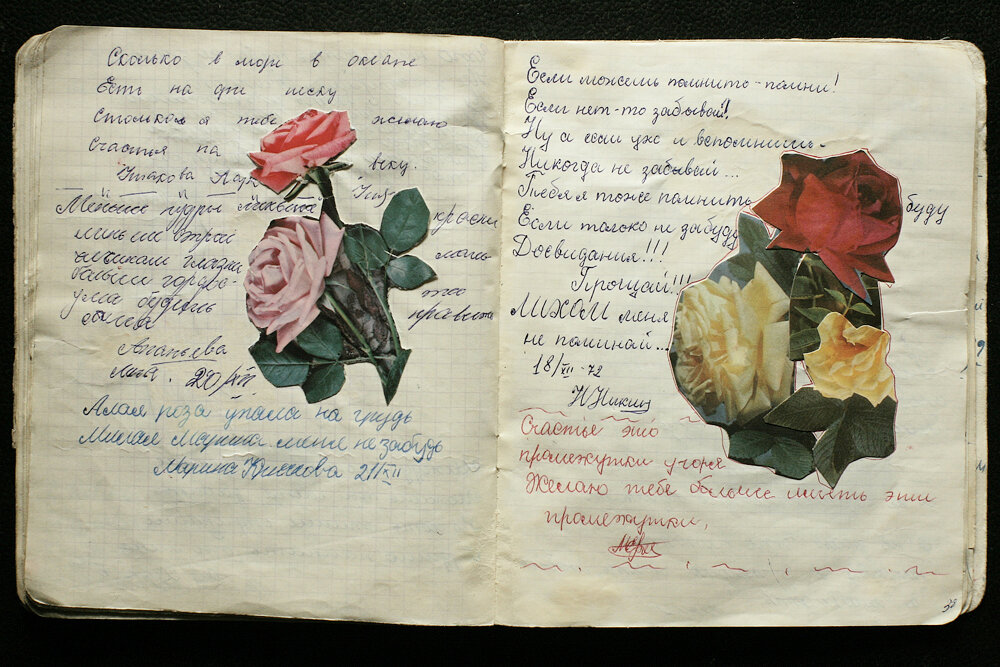 Сколько в море в океане
Есть на дне песку
Столько я тебе желаю
Счастья на веку.
Ушакова
Меньше пудры
меньше
больше гордос-
Ананьева
Лида. 20/XII
Алая роза упала на грудь
Милая Марина меня не забудь
Марина 21/XII
Если можешь помнить-помни!
Если нет-то забывай!
Ну а если уж и вспомнишь-
Никогда не забывай...
Тебя я тоже помнить буду
Если только не забуду
Досвидания!!!
Прощай!!!
ЛИХОМ меня
не поминай...
18/XII-72
Счастье это
промежутки у горя
Желаю тебе больше иметь эти
промежутки.